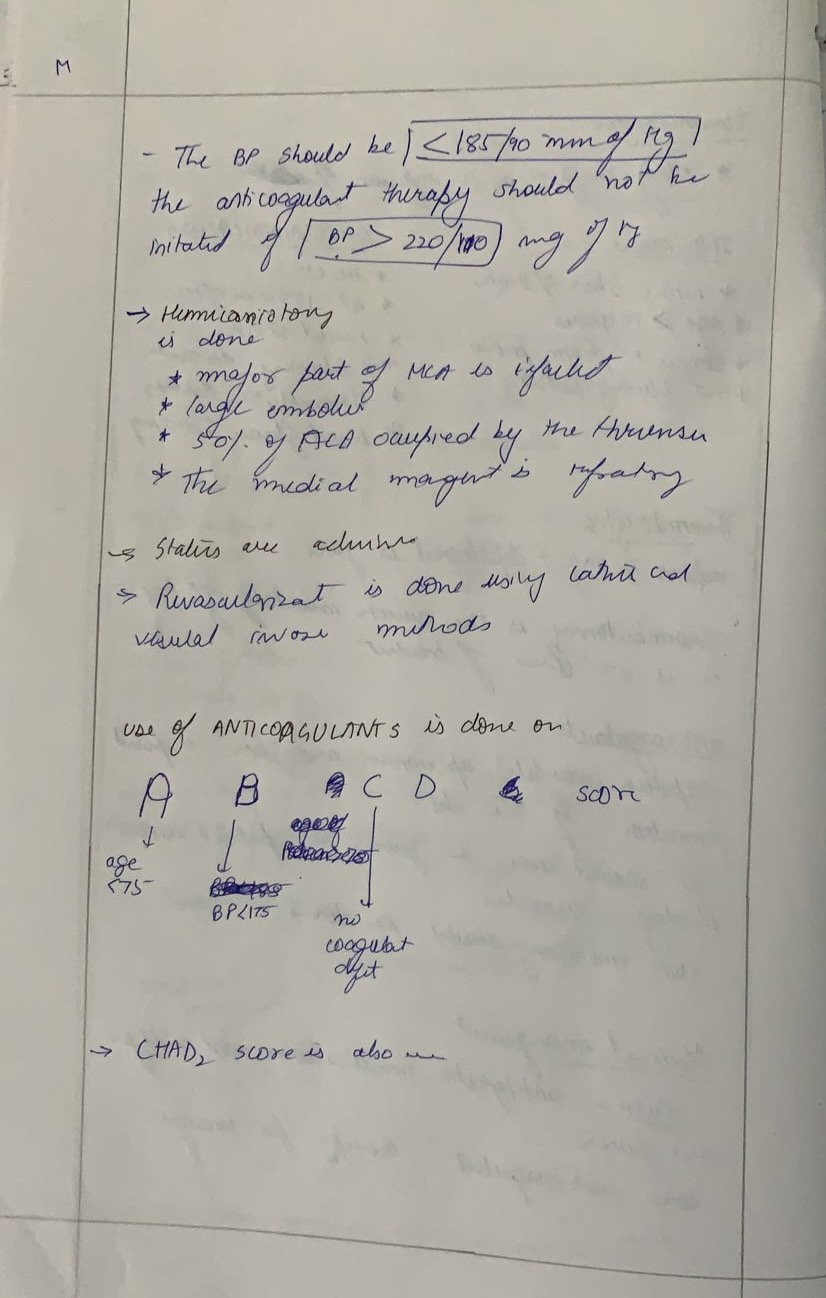 M
- The BP should be <185/90 mm of Hg
the anticoagulant therapy should not be
initated if BP > 220/110 mg of Hg
→ Hemicraniotomy
is done
* major part of MCA is infarct
* large embolus
* 50% of ACA occupied by the
* The medial is
→ Statins are
→ Revascularizat is done using and
methods
use of ANTICOAGULANTS is done on
A B C D score
age
<75
BP<175
no
coagulat
dfit
→ CHAD₂ score is also